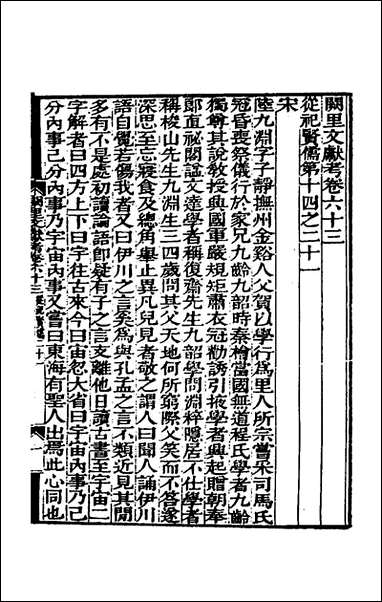 闕里文獻考卷六十三
從祀賢儒第十四之二十一
宋
陸九淵字子靜撫州金谿人父賀以學行為里人所宗嘗采司馬氏
冠昏喪祭儀行於家兄九齡九韶時秦檜當國無道程氏學者九齡
獨尊其說教授興國軍嚴規矩肅衣冠勸誘引掖學者興起贈朝奉
郎直祕閣諡文達學者稱復齋先生九韶學問淵粹隱居不仕學者
稱梭山先生九淵生三四歲問其父天地何所窮際父笑而不答遂
深思至忘寢食及總角舉止異凡兒見者敬之謂人曰聞人誦伊川
語自覺若傷我者又曰伊川之言奚為與孔孟之言不類近見其間
多有不是處初讀論語即疑有子之言支離他日讀古書至宇宙二
字解者曰四方上下曰宇往古來今曰宙忽大省曰宇宙內事乃己
分內事己分內事乃宇宙內事又嘗曰東海有聖人出焉此心同也
闕里文獻考卷六十三
一